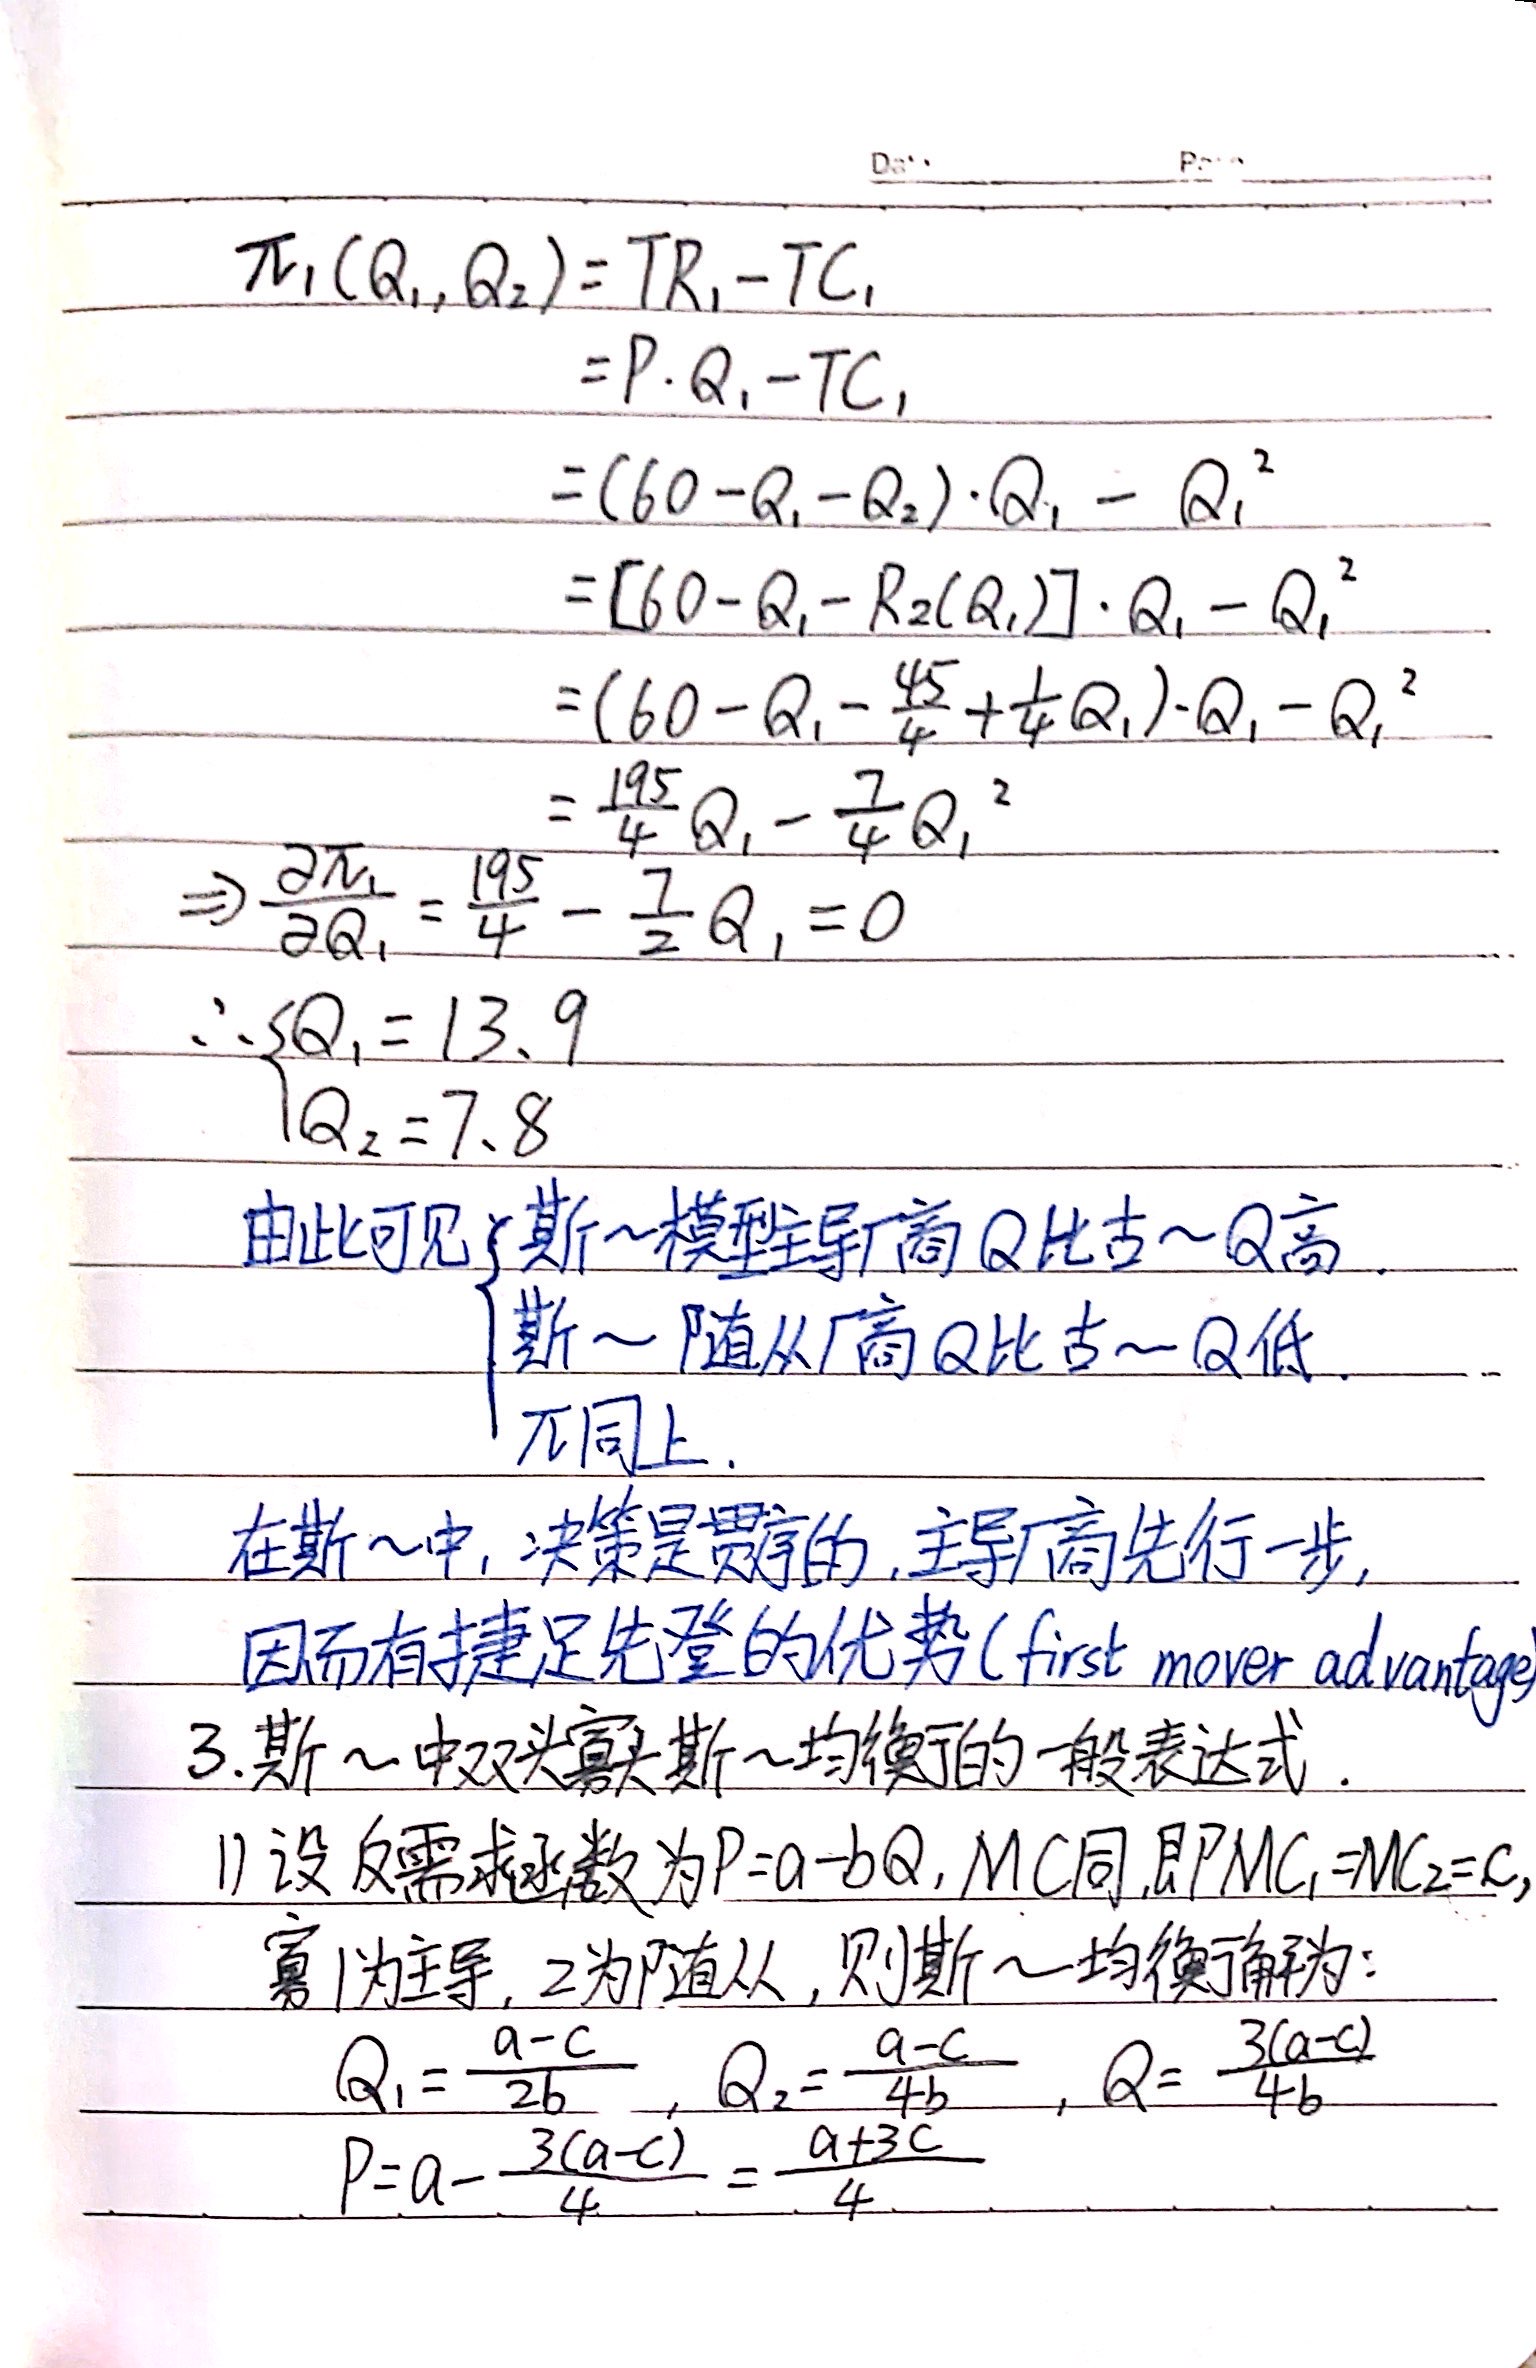 π₁(Q₁,Q₂)=TR₁-TC₁
=P·Q₁-TC₁
=(60-Q₁-Q₂)·Q₁-Q₁²
=[60-Q₁-R₂(Q₁)]·Q₁-Q₁²
=(60-Q₁-45/4+1/4Q₁)·Q₁-Q₁²
=195/4Q₁-7/4Q₁²
⇒∂π₁/∂Q₁=195/4-7/2Q₁=0
∴{Q₁=13.9
Q₂=7.8
由此可见{斯~模型主导厂商Q比古~Q高.
斯~随从厂商Q比古~Q低.
π同上.
在斯~中,决策是贯序的,主导厂商先行一步,
因而有捷足先登的优势(first mover advantage)
3.斯~中双头寡头斯~均衡的一般表达式.
1)设反需求函数为P=a-bQ,MC同,即MC₁=MC₂=c,
寡1为主导,2为随从,则斯~均衡解为:
Q₁=(a-c)/2b,Q₂=(a-c)/4b,Q=3(a-c)/4b
P=a-3(a-c)/4=(a+3c)/4